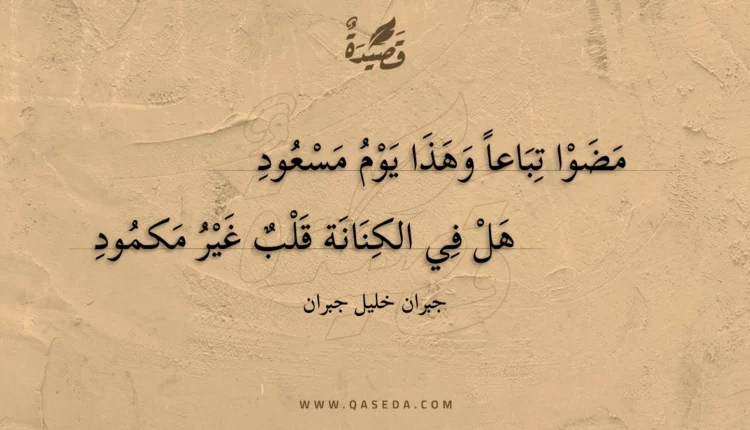 قَصِيْدَةٌ
مَضَوْا تِبَاعاً وَهَذَا يَوْمُ مَسْعُودِ
هَلْ فِي الكِنَانَة قَلْبٌ غَيْرُ مَكمُودِ
جبران خليل جبران
WWW.QASEDA.COM